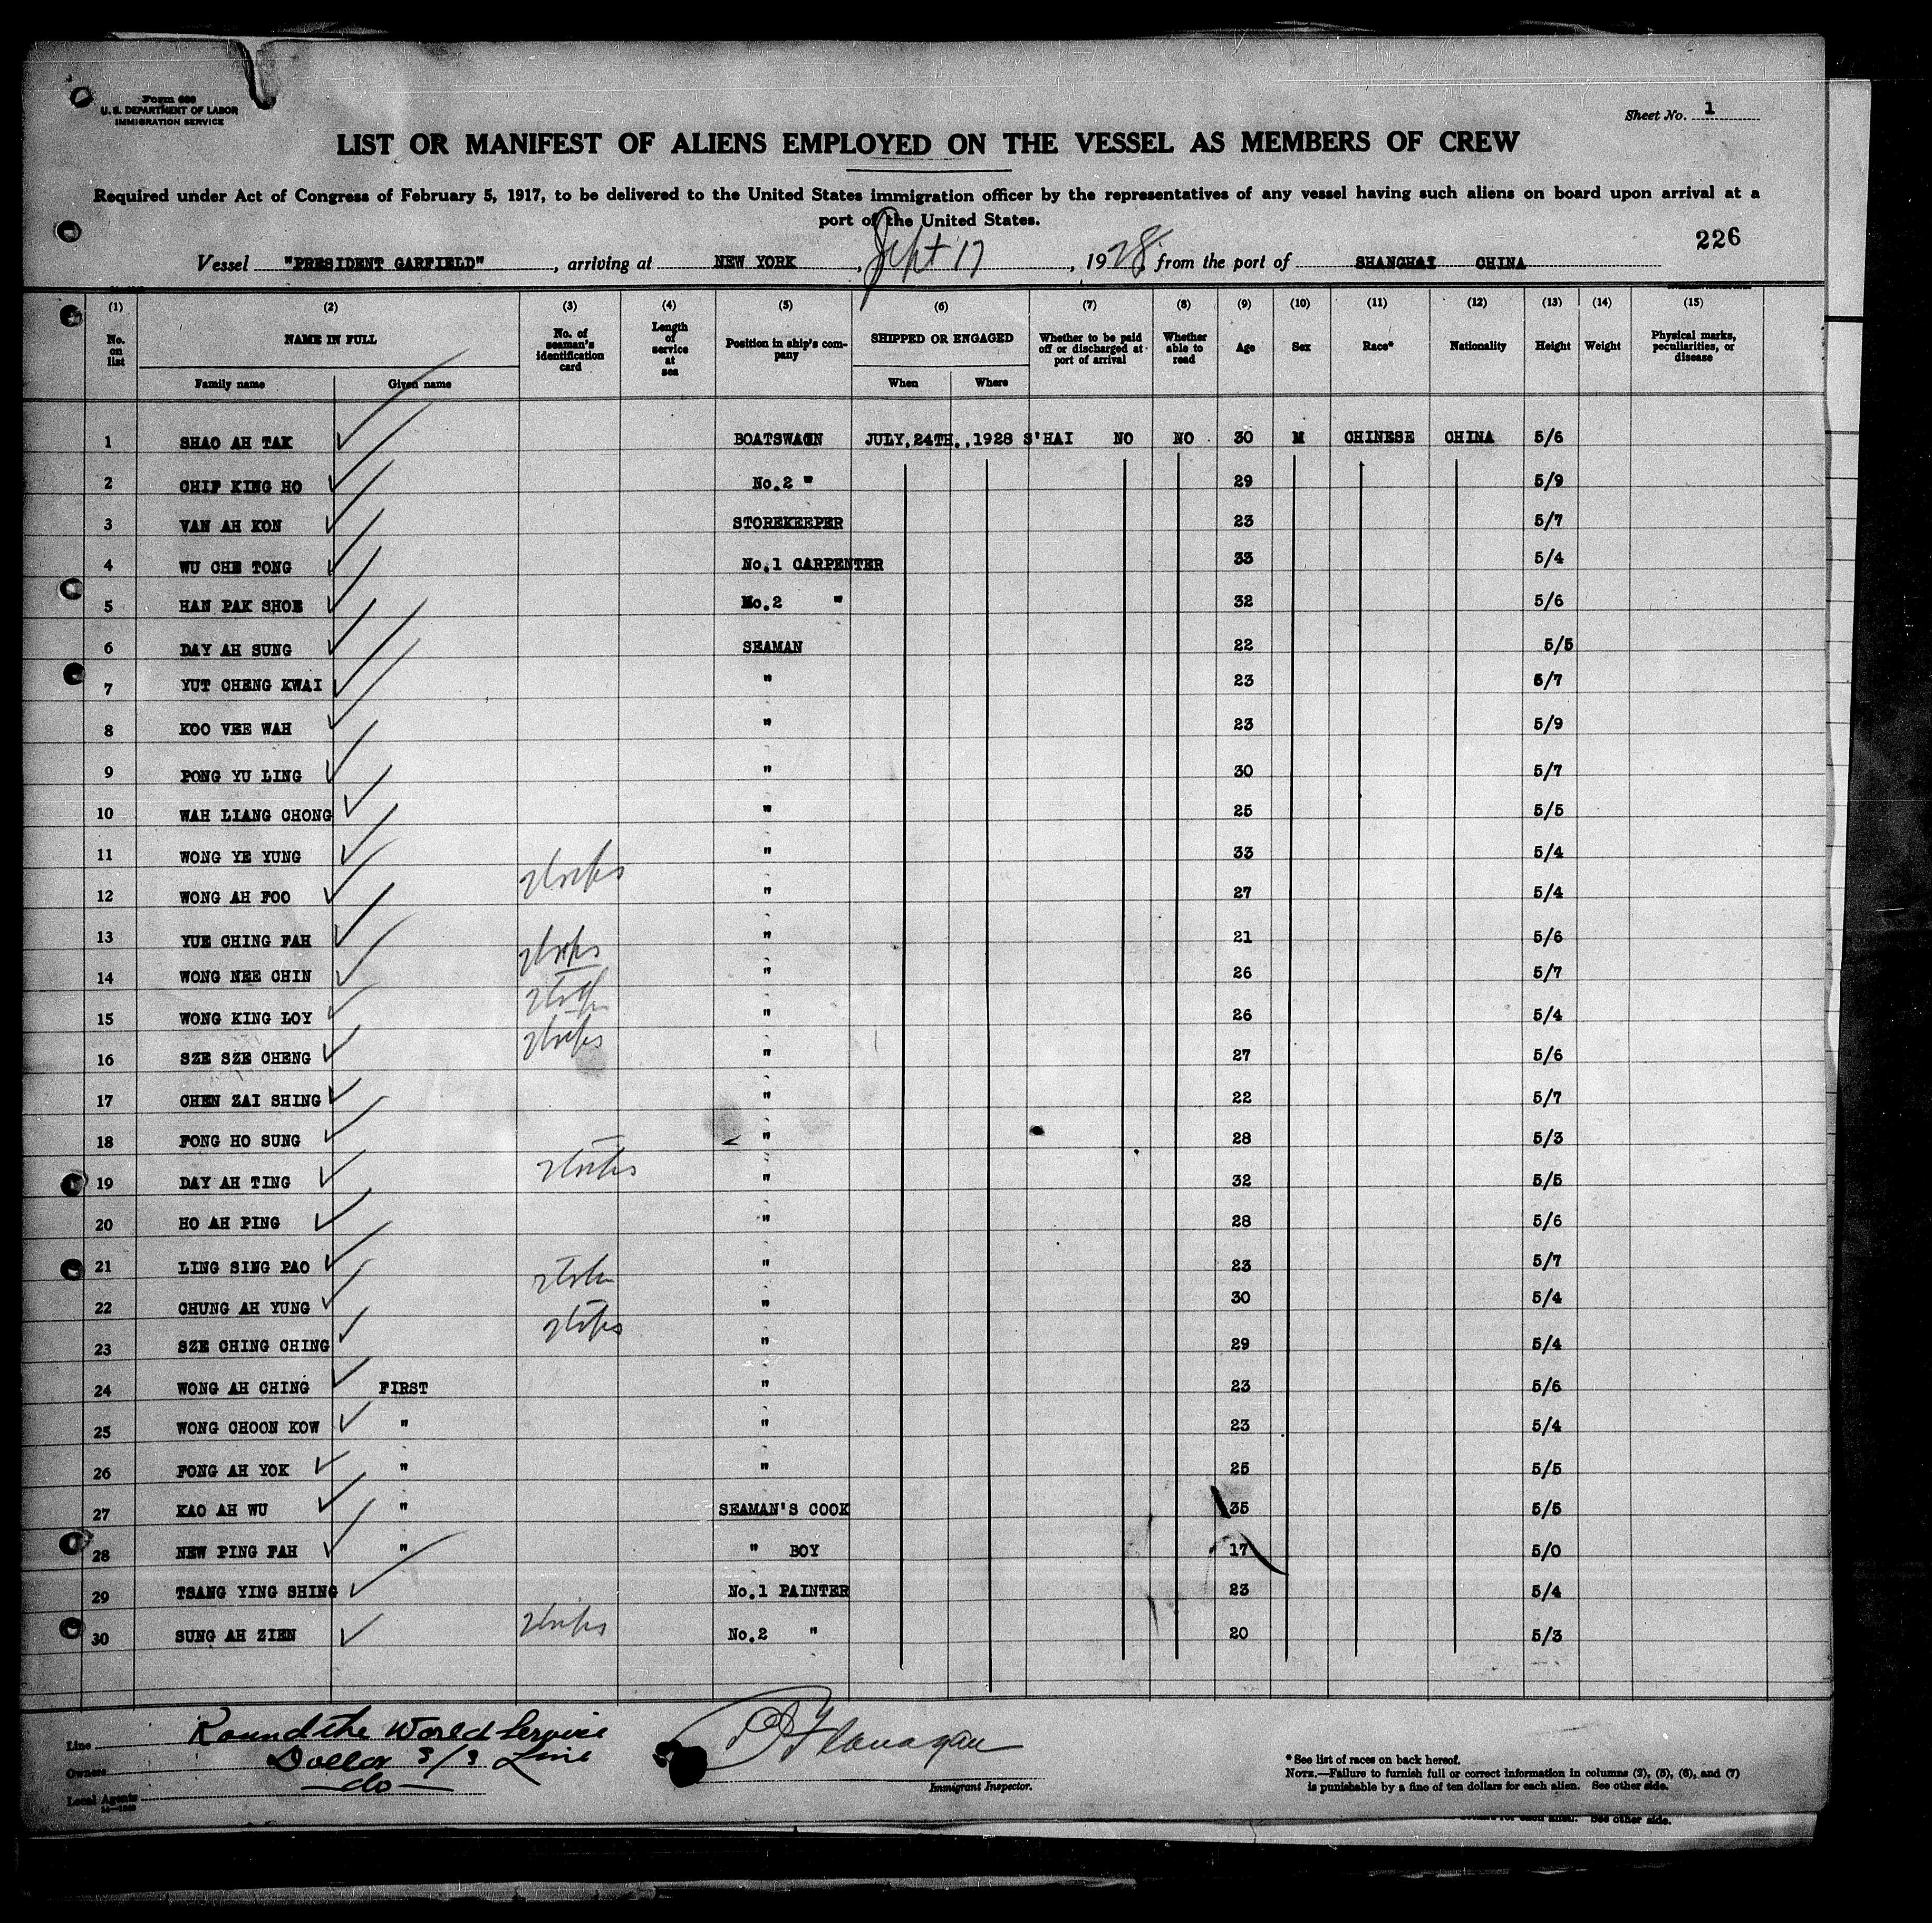 Form 680
U. S. DEPARTMENT OF LABOR
IMMIGRATION SERVICE
Sheet No. 1
LIST OR MANIFEST OF ALIENS EMPLOYED ON THE VESSEL AS MEMBERS OF CREW
Required under Act of Congress of February 5, 1917, to be delivered to the United States immigration officer by the representatives of any vessel having such aliens on board upon arrival at a
port of the United States.
226
Vessel "PRESIDENT GARFIELD", arriving at NEW YORK, Sept 17, 1928, from the port of SHANGHAI CHINA
(1) (2) (3) (4) (5) (6) (7) (8) (9) (10) (11) (12) (13) (14) (15)
No. on list NAME IN FULL No. of seaman's identification card Length of service at sea Position in ship's company SHIPPED OR ENGAGED Whether to be paid off or discharged at port of arrival Whether able to read Age Sex Race* Nationality Height Weight Physical marks, peculiarities, or disease
Family name Given name When Where
1 SHAO AH TAK BOATSWAIN JULY, 24TH., 1928 S'HAI NO NO 30 M CHINESE CHINA 5/6
2 CHIF KING HO No.2 " 29 5/9
3 VAN AH KON STOREKEEPER 23 5/7
4 WU CHE TONG No.1 CARPENTER 33 5/4
5 HAN PAK SHOE No.2 " 32 5/6
6 DAY AH SUNG SEAMAN 22 5/5
7 YUT CHENG KWAI " 23 5/7
8 KOO VEE WAH " 23 5/9
9 PONG YU LING " 30 5/7
10 WAH LIANG CHONG " 25 5/5
11 WONG YE YUNG " 33 5/4
12 WONG AH FOO " 27 5/4
13 YUE CHING FAH " 21 5/6
14 WONG NEE CHIN " 26 5/7
15 WONG KING LOY " 26 5/4
16 SZE SZE CHENG " 27 5/6
17 CHEN ZAI SHING " 22 5/7
18 FONG HO SUNG " 28 5/3
19 DAY AH TING " 32 5/5
20 HO AH PING " 28 5/6
21 LING SING PAO " 23 5/7
22 CHUNG AH YUNG " 30 5/4
23 SZE CHING CHING " 29 5/4
24 WONG AH CHING FIRST " 23 5/6
25 WONG CHOON KOW " " 23 5/4
26 FONG AH YOK " " 25 5/5
27 KAO AH WU " SEAMAN'S COOK 35 5/5
28 NEW PING FAH " " BOY 17 5/0
29 TSANG YING SHING No.1 PAINTER 23 5/4
30 SUNG AH ZIEN No.2 " 20 5/3
Line Round the World Service
Owners Dollar S/S Line
Local Agents do
Flanagan
Immigrant Inspector.
*See list of races on back hereof.
NOTE.—Failure to furnish full or correct information in columns (2), (5), (6), and (7)
is punishable by a fine of ten dollars for each alien. See other side.
See other side.